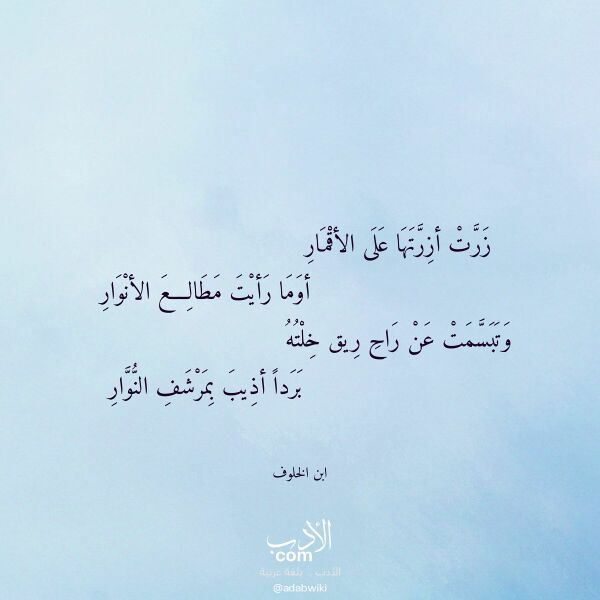 زَرَّتْ أزِرَّتَهَا عَلَى الأقْمَارِ
أوَمَا رَأيْتَ مَطَالِـــعَ الأنْوَارِ
وَتَبَسَّمَتْ عَنْ رَاحِ رِيق خِلْتُهُ
بَرَداً أذِيبَ بِمَرْشَفِ النُّوَّارِ
ابن الخلوف
الأدب
com
الأدب .. بلغة عربية
@adabwiki